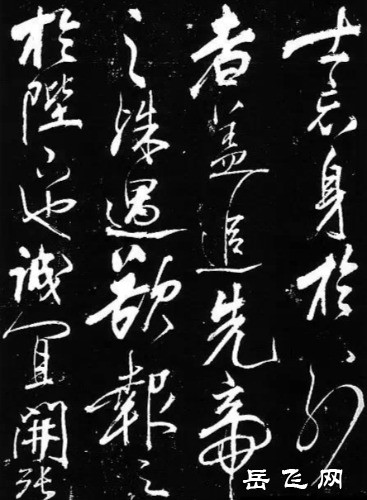 士忘身於外
者蓋追先帝
之殊遇欲報之
於陛下也誠宜開張
岳飞网